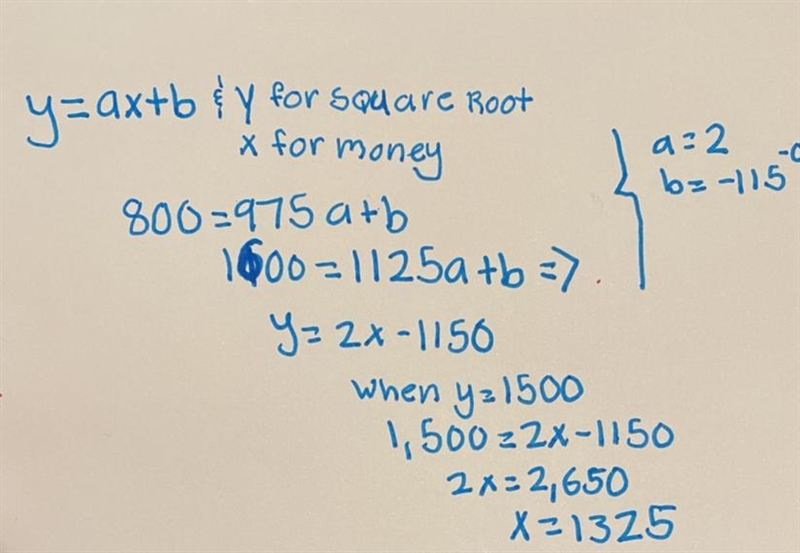 y=ax+b & y for square Root
x for money
800=975a+b
1600=1125a+b =>
{ a=2
b=-115
y=2x-1150
when y=1500
1,500=2x-1150
2x=2,650
x=1325